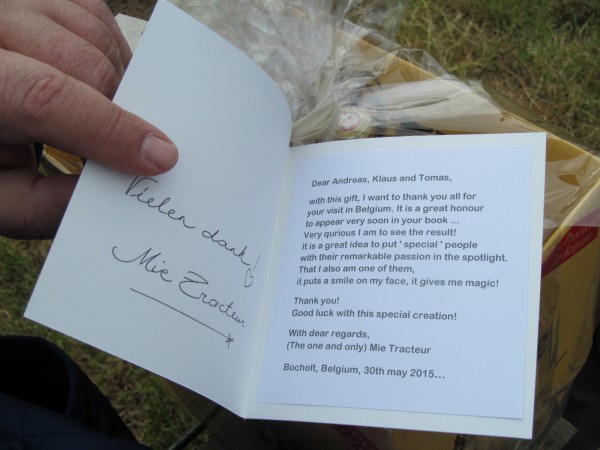 Vielen dank!
Mie Tracteur
Dear Andreas, Klaus and Tomas,
with this gift, I want to thank you all for
your visit in Belgium. It is a great honour
to appear very soon in your book ...
Very qurious I am to see the result!
It is a great idea to put ' special ' people
with their remarkable passion in the spotlight.
That I also am one of them,
it puts a smile on my face, it gives me magic!
Thank you!
Good luck with this special creation!
With dear regards,
(The one and only) Mie Tracteur
Bocholt, Belgium, 30th may 2015...